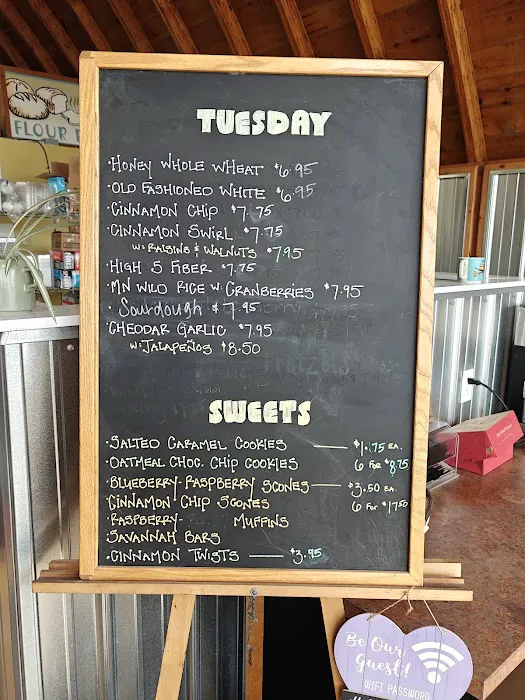 FLOUR
TUESDAY
·HONEY WHOLE WHEAT $6.95
·OLD FASHIONED WHITE $6.95
·CINNAMON CHIP $7.75
·CINNAMON SWIRL $7.75
W: RAISINS & WALNUTS $7.95
·HIGH 5 FIBER $7.75
·MN WILD RICE W: CRANBERRIES $7.95
· Sourdough $7.95
·CHEDDAR GARLIC $7.95
W: JALAPEÑOS $8.50
SWEETS
·SALTED CARAMEL COOKIES — $1.75 EA.
·OATMEAL CHOC. CHIP COOKIES 6 FOR $8.75
·BLUEBERRY-RASPBERRY SCONES — $3.50 EA.
·CINNAMON CHIP SCONES 6 FOR $17.50
·RASPBERRY- MUFFINS
·SAVANNAH BARS
·CINNAMON TWISTS — $3.95
Be Our
Guest!
WIFI PASSWORD